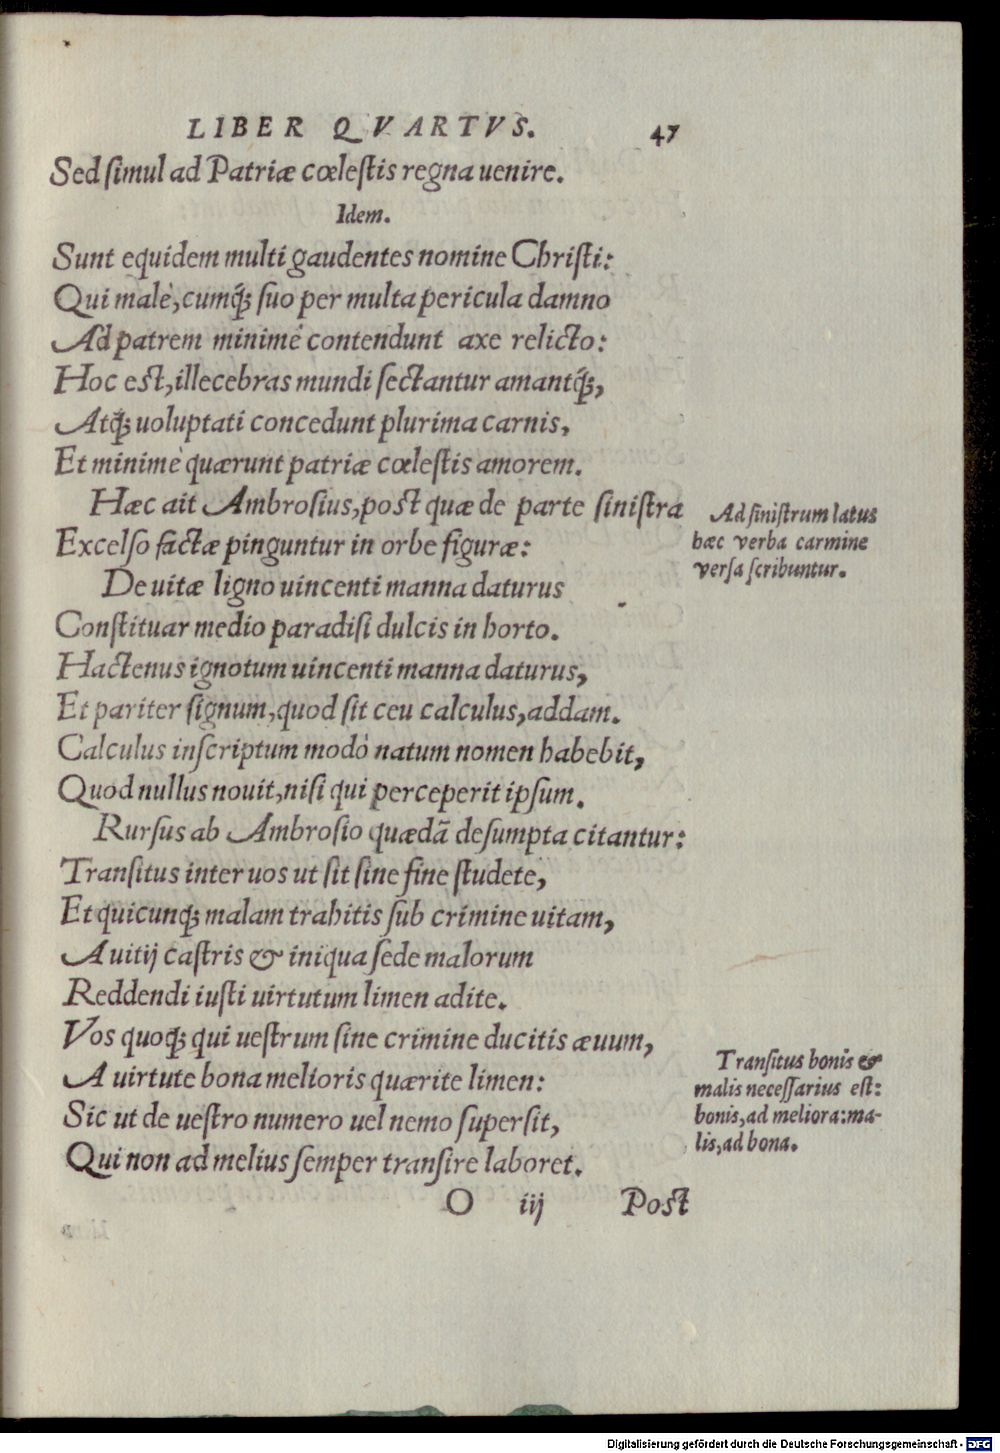 LIBER QVARTVS. 47
Sed ſimul ad Patriæ cœleſtis regna uenire.
Idem.
Sunt equidem multi gaudentes nomine Chriſti:
Qui malè, cumq́; ſuo per multa pericula damno
Ad patrem minimè contendunt axe relicto:
Hoc eſt, illecebras mundi ſectantur amantq́;,
Atq́; uoluptati concedunt plurima carnis,
Et minimè quærunt patriæ cœleſtis amorem.
Hæc ait Ambroſius, poſt quæ de parte ſiniſtra
Excelſo factæ pinguntur in orbe figuræ:
Ad ſiniſtrum latus
hæc verba carmine
verſa ſcribuntur.
De uitæ ligno uincenti manna daturus
Conſtituar medio paradiſi dulcis in horto.
Hactenus ignotum uincenti manna daturus,
Et pariter ſignum, quod ſit ceu calculus, addam.
Calculus inſcriptum modò natum nomen habebit,
Quod nullus nouit, niſi qui perceperit ipſum.
Rurſus ab Ambroſio quædã deſumpta citantur:
Tranſitus inter uos ut ſit ſine fine ſtudete,
Et quicunq; malam trahitis ſub crimine uitam,
A uitij caſtris & iniqua ſede malorum
Reddendi iuſti uirtutum limen adite.
Vos quoq; qui ueſtrum ſine crimine ducitis æuum,
A uirtute bona melioris quærite limen:
Sic ut de ueſtro numero uel nemo ſuperſit,
Qui non ad melius ſemper tranſire laboret.
Tranſitus bonis &
malis neceſſarius eſt:
bonis, ad meliora: ma-
lis, ad bona.
O iij Poſt
Digitalisierung gefördert durch die Deutsche Forschungsgemeinschaft - DFG